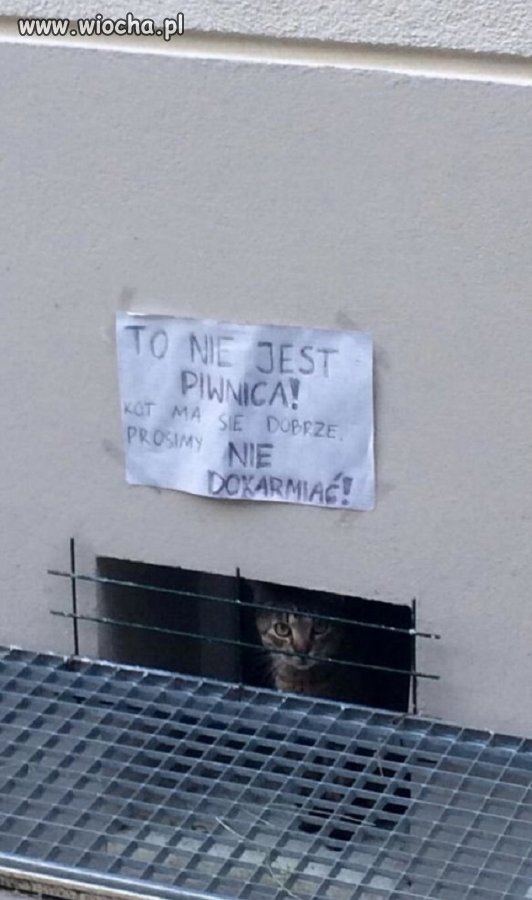 www.wiocha.pl
TO NIE JEST
PIWNICA!
KOT MA SIE DOBRZE.
PROSIMY NIE
DOKARMIAĆ!